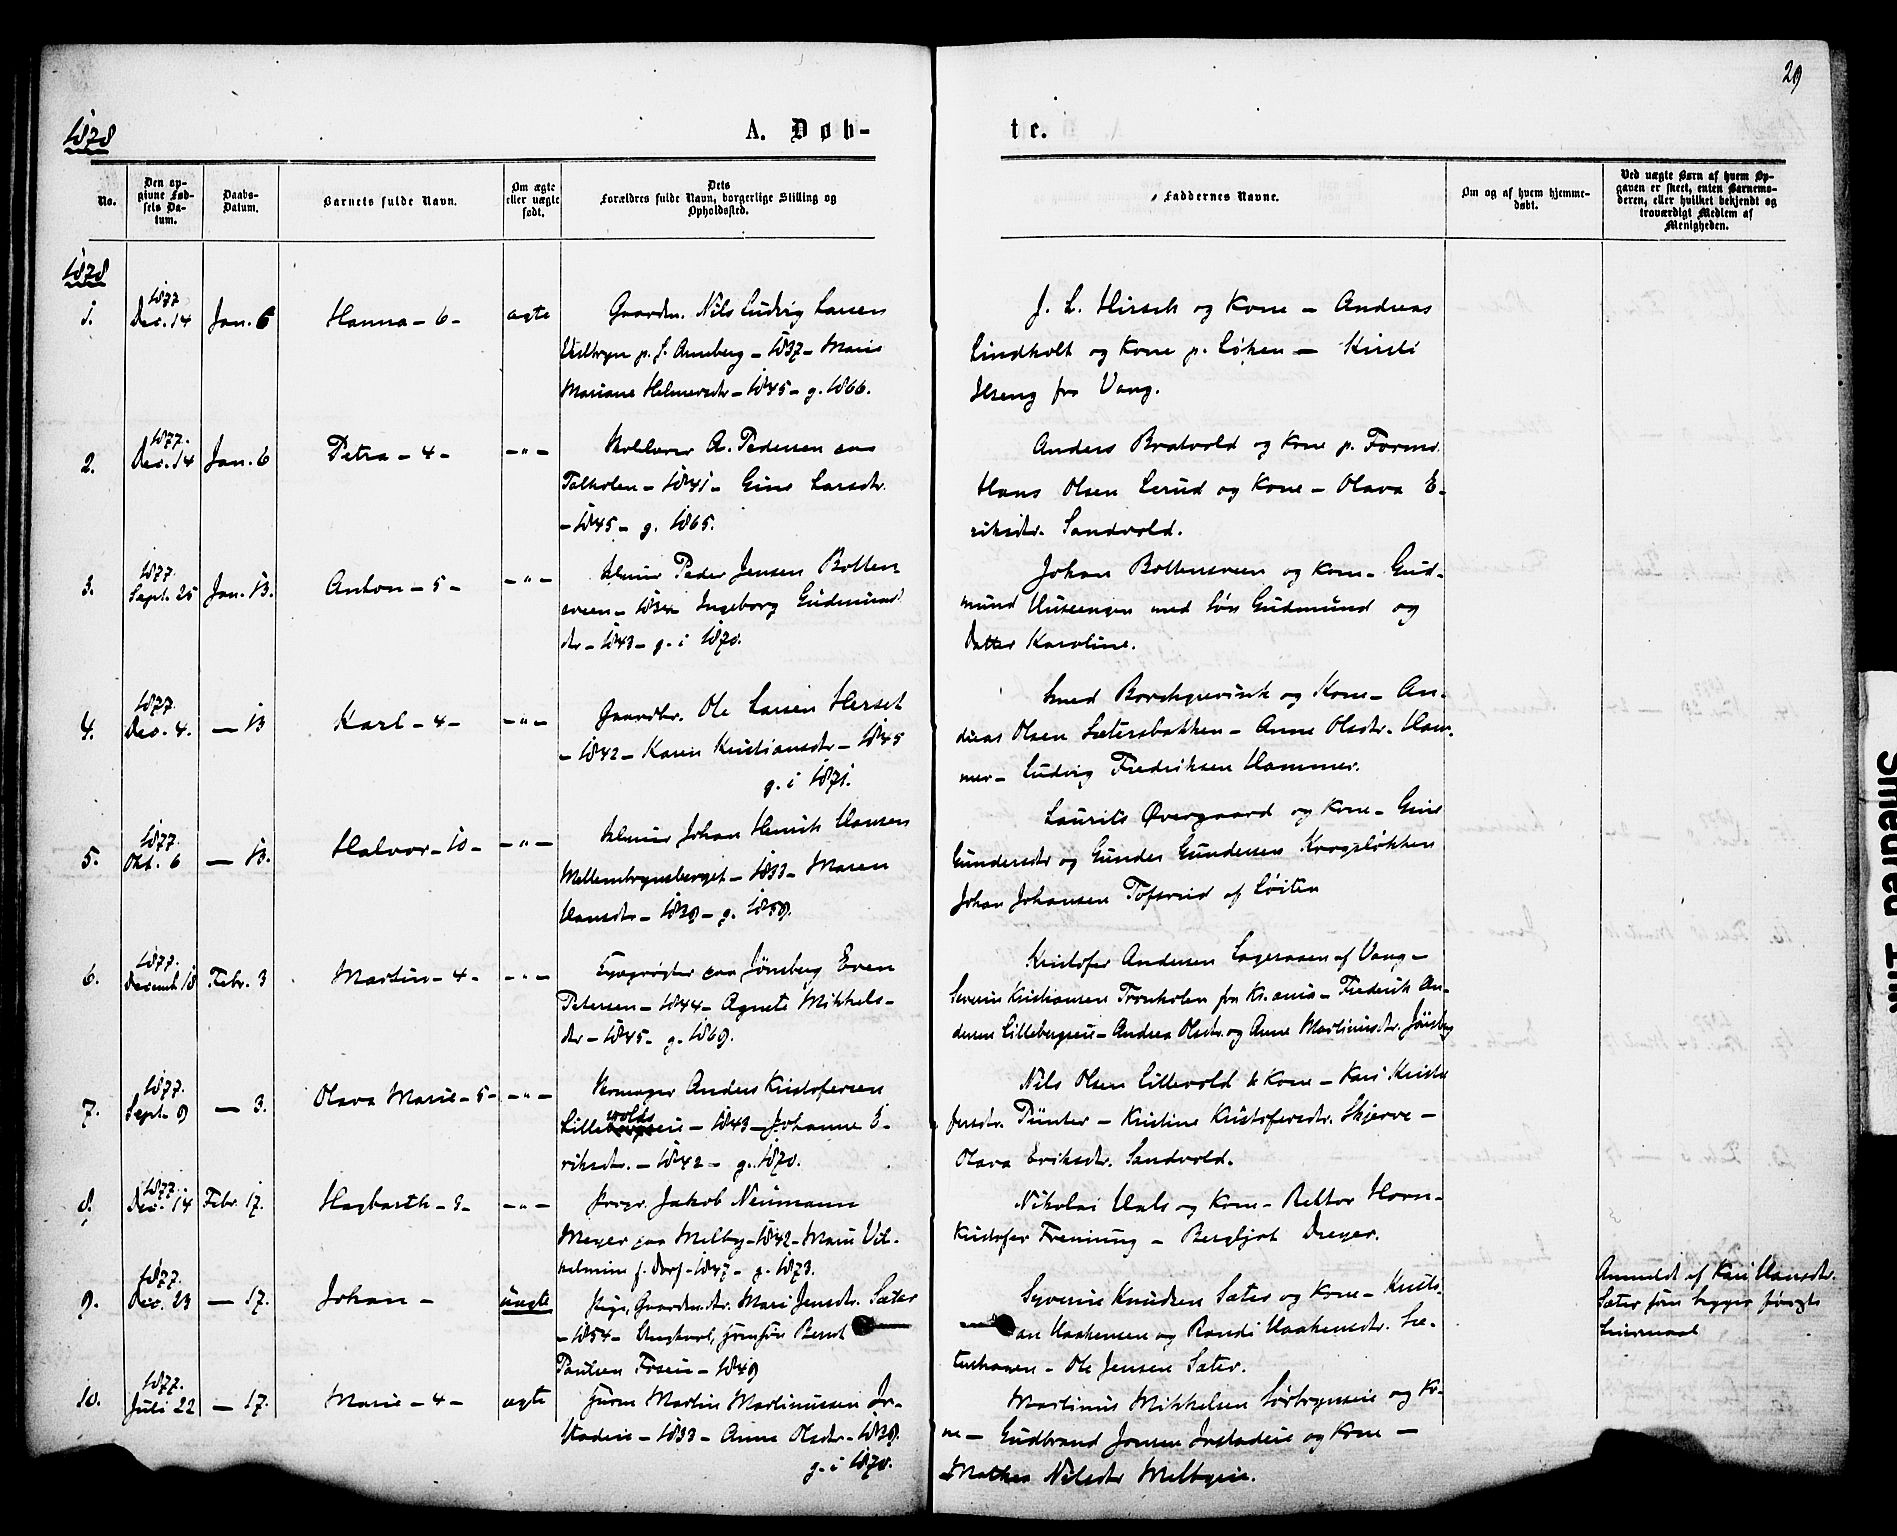 29
1878
A. Døb-
te.
No.
Den op-
givne Fød-
sels Da-
tum.
Daabs-
Datum.
Barnets fulde Navn.
Om ægte
eller uægte
født.
Dets
Forældres fulde Navn, borgerlige Stilling og
Opholdssted.
Faddernes Navne.
Om og af hvem hjemme-
døbt.
Ved uægte Børn af hvem Op-
gaven er skeet, enten Barnemo-
deren, eller hvilket bekjendt og
troværdigt Medlem af
Menigheden.
1878
1.
1877
Dec. 14
Jan. 6
Hanna - 6 -
ægte
Gaardm. Nils Ludvig Larsen
p. f. Anneberg - 1837 - Marie
Mariane Helmersdtr - 1845 - g. 1866.
J. L. Hirsch og Kone - Andreas
Lindholt og Kone p. Løken - Kirsti
fra Vang.
2.
1877.
Dec. 14
Jan. 6
Petra - 4 -
- " -
A. Pedersen
- 1841 - Gine Larsdtr.
- 1845 - g. 1865.
Anders Bratvold og Kone p.
Hans Olsen Lerud og Kone - Olava E-
riksdtr. Sandvold.
3.
1877.
Sept. 25
Jan. 13.
Anton - 5 -
- " -
Peder Jensen Botten-
sveen - 1834 Ingeborg Gudmunds
dtr - 1843 - g. i 1870.
Johan Bottensveen og Kone - Gud-
mund med Søn Gudmund og
Datter Karoline.
4.
1877.
Dec. 4.
- 13
Karl - 4 -
- " -
Gaardbr. Ole Larsen Herset
- 1842 - Karen Kristiansdtr - 1845
g. i 1871.
Smed Borchgrevink og Kone - An-
dreas Olsen Sætersbakken - Anne Olsdtr. Ham-
mer - Ludvig Fredriksen Hammer.
5.
1877.
Okt. 6
- 13.
Halvor - 10 -
- " -
Johan Henrik Hansen
Mellembynsberget - 1833 - Maren
Hansdtr - 1839 - g. 1859.
Laurits Øvergaard og Kone - Gine
Gundersdtr og Gunder Gundersen Krogsløkken
Johan Johansen af Løiten
6.
1877.
Decemb. 18
Febr. 3
Martin - 4 -
- " -
paa Jønsberg Even
Petersen - 1844 - Agnete Mikkels-
dtr - 1845 - g. 1869.
Kristofer Andersen af Vang -
Severin Kristiansen Tronholen fra Kr.ania - Frederik An-
dersen Lillebergseie - Andrea Olsdtr. og Anne Martinusdtr. Jønsberg
7.
1877.
Sept. 9
- 3.
Olava Marie - 5 -
- " -
Skomager Anders Kristofersen
volds
Lillebergseie - 1843 - Johanne E-
riksdtr. - 1842 - g. 1870.
Nils Olsen Lillevold & Kone - Kari Kristo
fersdtr. Pünter - Kristine Kristofersdtr. Skjerve -
Olava Eriksdtr. Sandvold.
8.
1877.
Dec. 14
Febr. 17.
Hagbarth - 3 -
- " -
Jakob Neumann
Meyer paa Melby - 1842 - Marie Vil-
helmine f. Dorf - 1847 - g. 1873.
Nikolai Hals og Kone - Rektor Horn -
Kristofer - Bergljot Dreyer.
9.
1877.
Dec. 23
- 17.
Johan -
uægte
Pige, Gaardm.dtr. Mari Jensdtr. Sæter
- 1854 - Ungkarl, Bernt
Paulsen - 1849
Syverin Knudsen Sæter og Kone - Kristi-
an Haakensen og Randi Haakensdtr. Sæ-
terhagen - Ole Jensen Sæter.
Anmeldt af Kari Hansdtr.
Sæter
10.
1877.
Juli 22
- 17.
Marie - 4 -
ægte
Martin Martinussen
- 1833 - Anne Olsdtr - 1839.
g. i 1870.
Martinus Mikkelsen Sørbyseie og Ko-
ne - Gudbrand Jensen og Kone -
Mathea Nilsdtr Melbyeie.